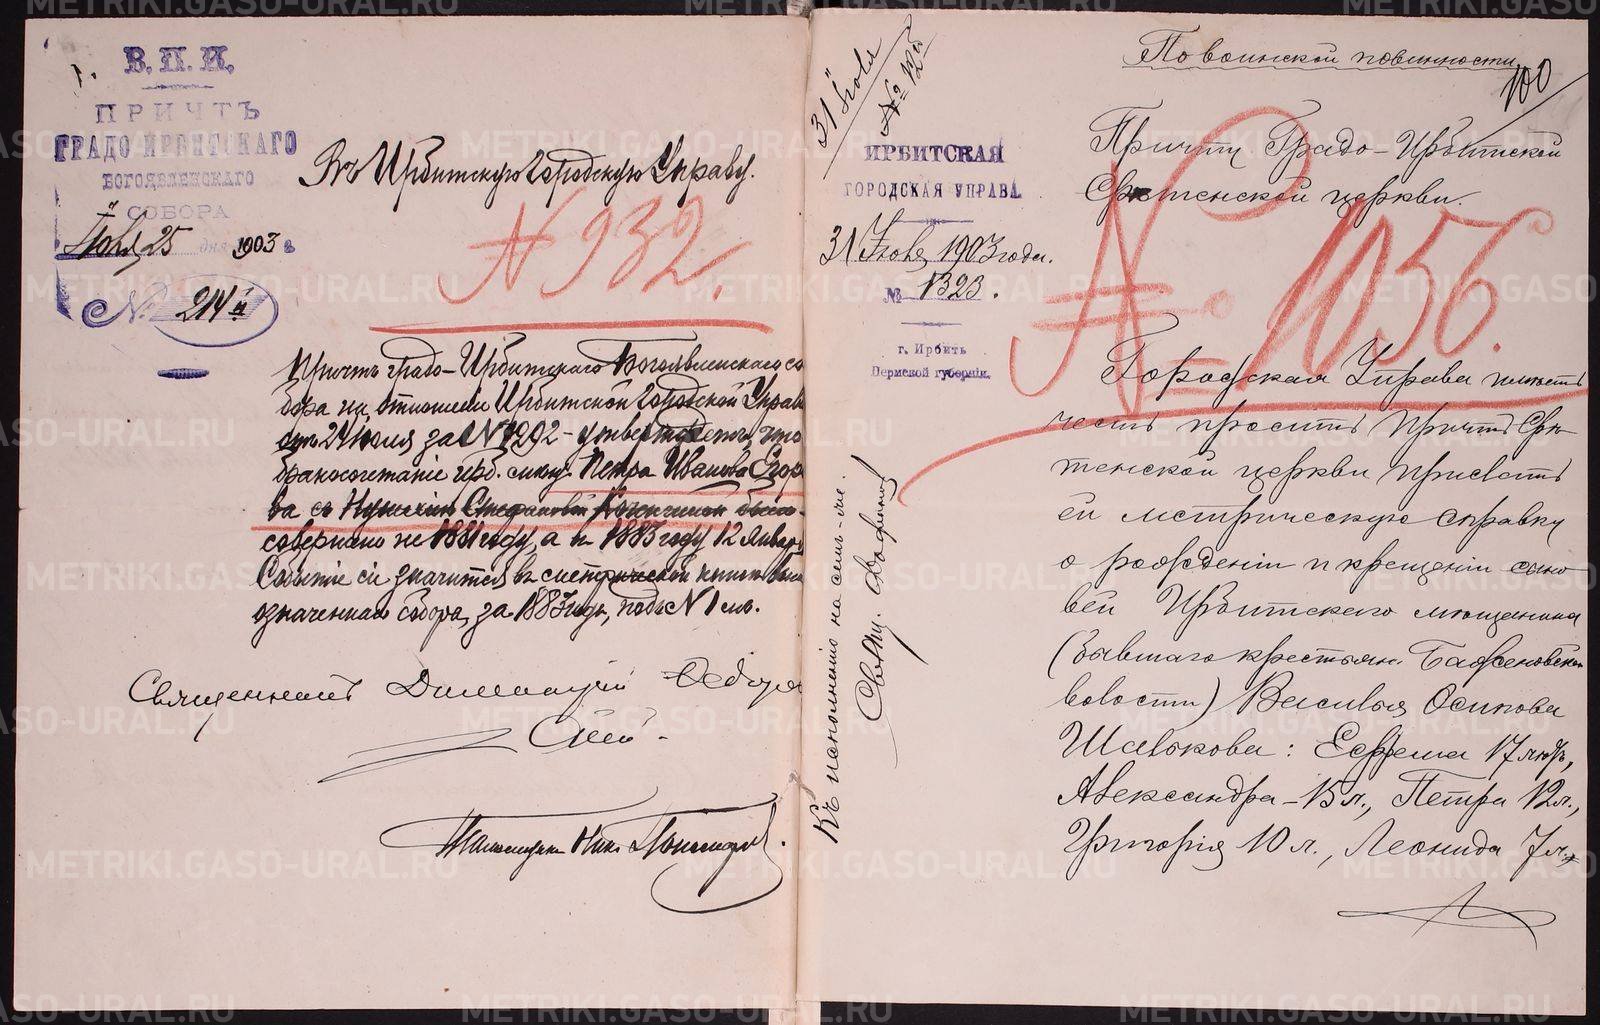 В. П. И.
ПРИЧТЪ
ГРАДО ИРБИТСКАГО
БОГОЯВЛЕНСКАГО
СОБОРА
Іюля 25 дня 1903 г.
№ 214й
Въ Ирбитскую Городскую Управу.
№ 932.
Причтъ градо-Ирбитскаго Богоявленскаго со
бора на отношеніи Ирбитской Городской Управы
отъ 24 іюля за № 1292 - что
бракосочетаніе ирб. мѣщ. Петра Иванова Егоро
ва съ Степановой было
совершено не 1881 году, а въ 1883 году 12 Января
Событіе сіе значится въ метрической книгѣ выше
означеннаго собора, за 1883 годъ, подъ № 1 мъ.
Священникъ Димитрій
Псаломщикъ Ник.
31 Іюля
№
По воинской повинности
100
ИРБИТСКАЯ
ГОРОДСКАЯ УПРАВА
31 Іюля 1903 года.
№ 1323.
г. Ирбить
Пермской губерніи.
Причту Градо-Ирбитской
Срѣтенской церкви.
№ 1056.
Городская Управа имѣетъ
честь просить Причтъ Срѣ
тенской церкви прислать
ей метрическую справку
о рожденіи и крещеніи сыно
вей Ирбитскаго мѣщанина
(бывшаго крестьян. Баженовской
волости) Василья Осипова
Шавкова: Ефрема 17 лѣтъ,
Александра - 15 л., Петра 12 л.,
Григорія 10 л., Леонида 7 л.,
Къ исполненію на семъ-же.
Свящ.
METRIKI.GASO-URAL.RU